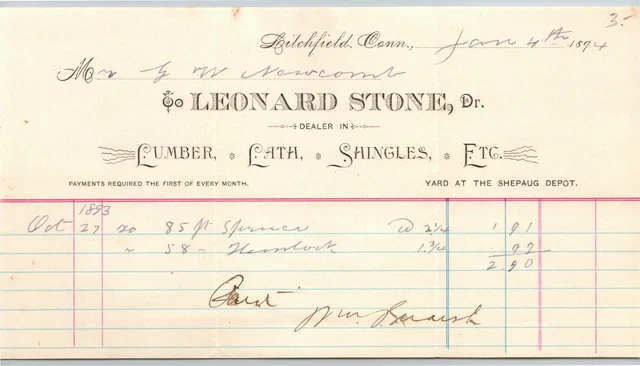 3.-
Litchfield, Conn., Jan 4th 1894
Mr G W Newcomb
To LEONARD STONE, Dr.
DEALER IN
LUMBER, * LATH, * SHINGLES, * ETC.
PAYMENTS REQUIRED THE FIRST OF EVERY MONTH. YARD AT THE SHEPAUG DEPOT.
1893
Oct 27 20 85 ft Spruce @ 2 1/4 1 91
" 58 " Hemlock 1.3/4 99
2.90
Paid
Wm